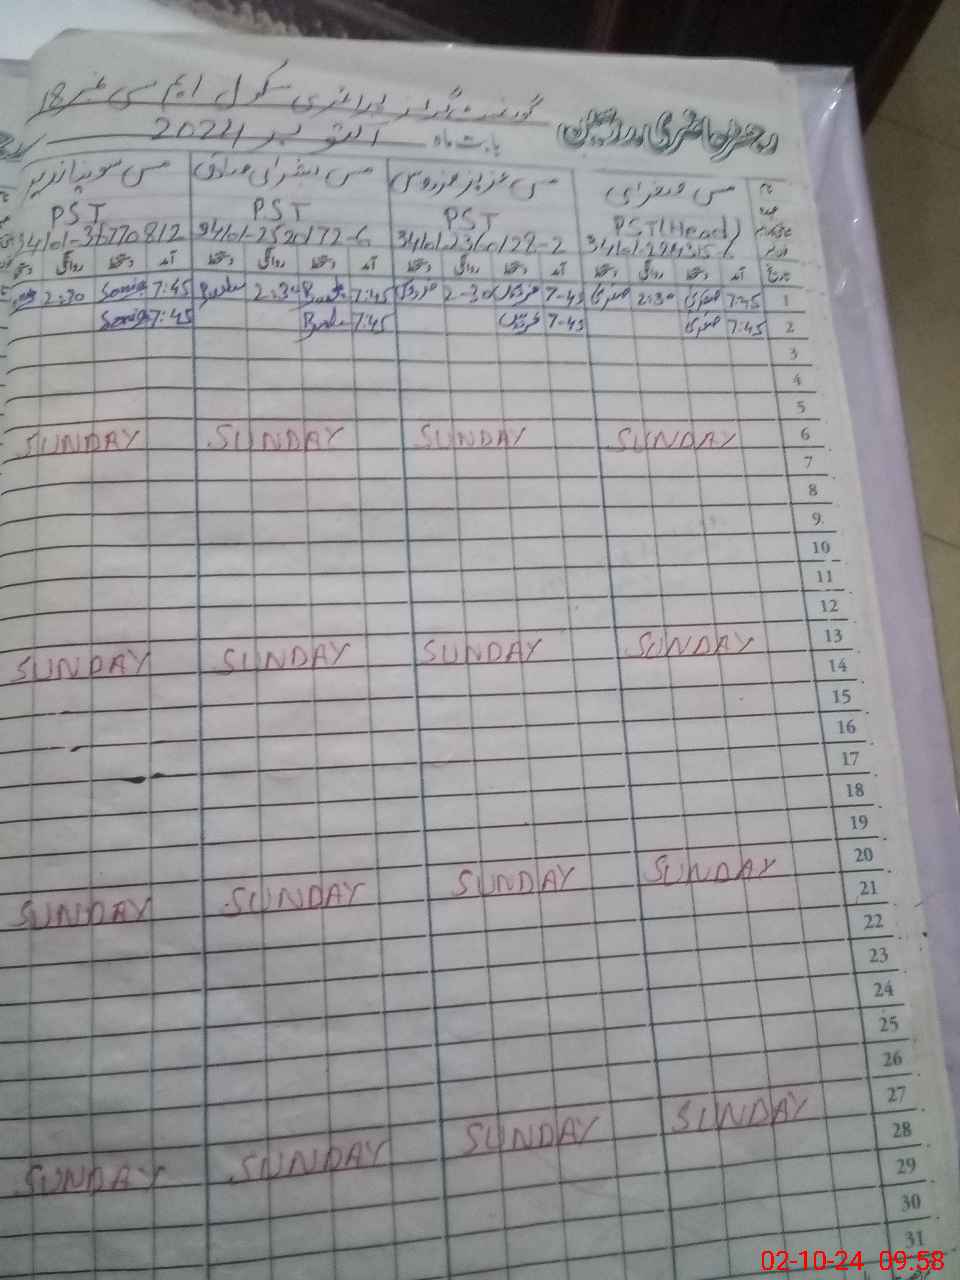 گورنمنٹ گرلز پرائمری سکول ایم سی نمبر 18
رجسٹر حاضری مدرسین بابت ماہ اکتوبر 2024
نام مس صغرای مس عزیز فردوس مس بشرای صادق مس سونیا نذیر
عہدہ PST(Head) PST PST PST
34101-2360128-2 34101-2520172-6 34101-3677081/2
تاریخ آمد دستخط روانگی دستخط آمد دستخط روانگی دستخط آمد دستخط روانگی دستخط آمد دستخط روانگی دستخط
1 7:45 صغری 2:30 صغری 7-45 فردوس 2-30 فردوس 7:45 2:30 7:45 Sonia 2:30
2 7:45 صغری 7-45 فردوس 7:45 7:45 Sonia
3
4
5
6 SUNDAY SUNDAY SUNDAY SUNDAY
7
8
9
10
11
12
13 SUNDAY SUNDAY SUNDAY SUNDAY
14
15
16
17
18
19
20 SUNDAY SUNDAY SUNDAY SUNDAY
21
22
23
24
25
26
27 SUNDAY SUNDAY SUNDAY SUNDAY
28
29
30
31
02-10-24 09:58